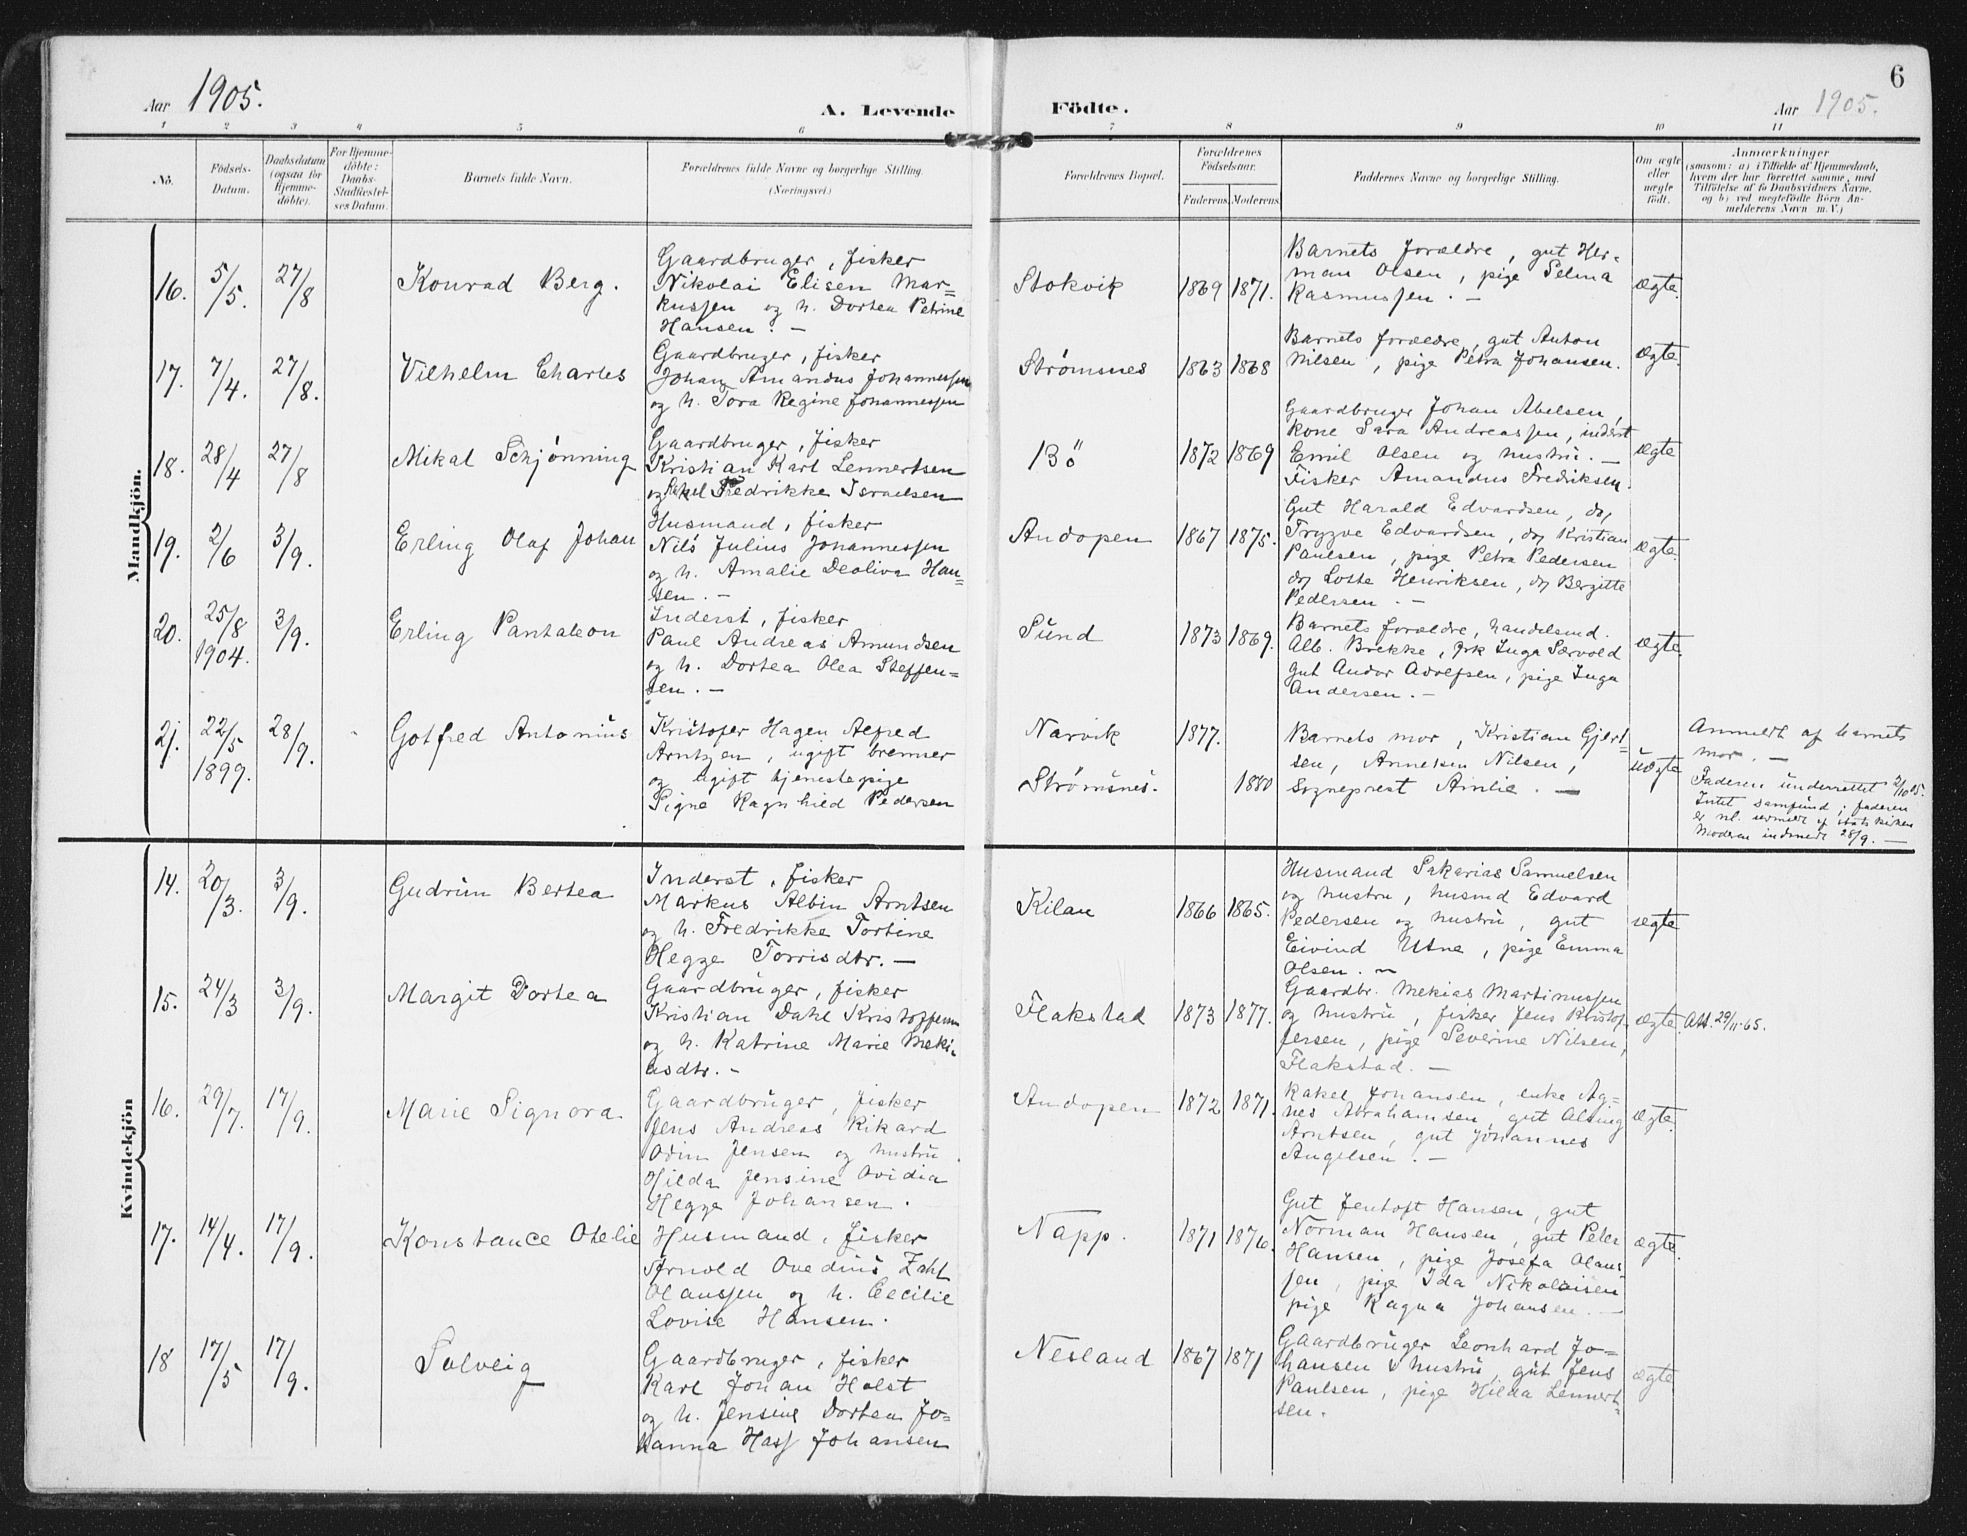 6
Aar 1905.
A. Levende Födte.
Aar 1905.
1 2 3 4 5 6 7 8 9 10 11
No.
Födsels-
Datum.
Daabsdatum
(ogsaa for
Hjemme-
döbte).
For Hjemme-
döbte:
Daabs-
Stadfæstel-
ses Datum.
Barnets fulde Navn.
Forældrenes fulde Navne og borgerlige Stilling
(Næringsvei.)
Forældrenes Bopæl.
Forældrenes
Födselsaar.
Faderens Moderens
Faddernes Navne og borgerlige Stilling.
Om ægte
eller
uægte
födt.
Anmærkninger
(saasom: a) i Tilfælde af Hjemmedaab,
hvem der har forrettet samme, med
Tilföielse af to Daabsvidners Navne,
og b) ved uægtefödte Börn An-
melderens Navn m. V.)
Mandkjön.
16. 5/5. 27/8 Konrad Berg.
Gaardbruger, fisker
Nikolai Elisen Mar-
kussen og h. Dortea Petrine
Hansen. —
Stokvik 1869 1871.
Barnets forældre, gut Her-
man Olsen, pige Selma
Rasmussen. —
ægte.
17. 7/4. 27/8. Vilhelm Charles
Gaardbruger, fisker
Johan Amandus Johannessen
og h. Tora Regine Johannessen
Strømsnes 1863 1868
Barnets forældre, gut Anton
Nilsen, pige Petra Johansen.
ægte.
18. 28/4 27/8 Mikal Schjønning
Gaardbruger, fisker
Kristian Karl Lennertsen
og Fredrikke Israelsen
Bö 1872 1869
Gaardbruger Johan Abelsen,
kone Sara Andreassen, inderst
Emil Olsen og hustru. —
Fisker Amandus Fredriksen.
ægte
19. 2/6 3/9. Erling Olaf Johan
Husmand, fisker
Nils Julius Johannessen
og h. Amalie Deoliva Han-
sen. —
Andopen 1867 1875.
Gut Harald Edvardsen, do
Trygve Edvardsen, do Kristian
Paulsen, pige Petra Pedersen
do Lotte Henriksen, do Bergitte
Pedersen. —
ægte.
20. 25/8 1904. 3/9. Erling Pantaleon
Inderst, fisker
Paul Andreas Amundsen
og h. Dortea Olea Steffen-
sen. —
Sund 1873 1869.
Barnets forældre, handelsmd.
Alb. Brekke, frk Inga Særvold
gut Andor Adolfsen, pige Inga
Andersen. —
ægte.
21. 22/5 1899. 28/9. Gotfred Antonius
Kristofer Hagen Alfred
Arntzen, ugift bremser
og ugift tjenestepige
Signe Ragnhild Pedersen
Narvik 1877.
Strømsnes. 1880
Barnets mor, Kristian Gjert-
sen, Anneken Nilsen,
Sogneprest Amlie. —
uægte
Anmeldt af barnets
mor. —
Faderen underrettet 2/10 05.
Intet samfund; faderen
er nl. udmeldt af statskirken
Moderen indmeldt 28/9. —
Kvindekjön
14. 20/3. 3/9. Gudrun Bertea
Inderst, fisker
Markus Albin Arntsen
og h. Fredrikke Tortine
Hegge Torrisdtr. —
Kilan 1866 1865.
Husmand Sakarias Samuelsen
og hustru, husmd Edvard
Pedersen og hustru, gut
Eivind Utne, pige Emma
Olsen. —
ægte
15. 24/3 3/9. Margit Dortea
Gaardbruger, fisker
Kristian Dahl Kristoffersen
og h. Katrine Marie Meki-
asdtr. —
Flakstad 1873 1877.
Gaardbr. Mekias Martinussen
og hustru, fisker Jens Kristof-
fersen, pige Severine Nilsen,
Flakstad. —
ægte. Att. 29/11-65.
16. 29/7. 17/9. Marie Signora
Gaardbruger, fisker
Jens Andreas Rikard
Odin Jensen og hustru
Hilda Jensine Ovidia
Hegge Johansen.
Andopen 1872 1871.
Rakel Johansen, enke Ag-
nes Abrahamsen, gut Alsing
Arntsen, gut Johannes
Angelsen. —
ægte.
17. 14/4. 17/9. Konstance Otelie
Husmand, fisker
Arnold Ovedius Zahl
Olaussen og h. Cecilie
Lovise Hansen.
Napp. 1871 1876.
Gut Jentoft Hansen, gut
Norman Hansen, gut Peter
Hansen, pige Josefa Olaus-
sen, pige Ida Nikolaisen
pige Ragna Johansen. —
ægte.
18 17/5 17/9. Solveig
Gaardbruger, fisker
Karl Johan Holst
og h. Jensine Dortea Jo-
hanna Hass Johansen
Nesland 1867 1871
Gaardbruger Leonhard Jo-
hansen & hustru, gut Jens
Paulsen, pige Hilda Lennert-
sen.
ægte